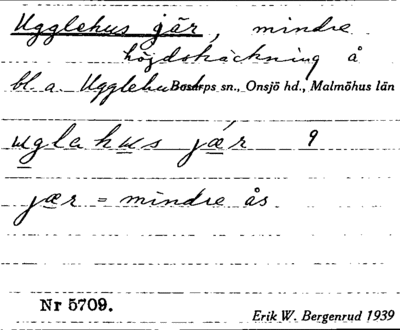 Ugglehus jär, mindre
höjdsträckning å
bl. a. Ugglehus Bosarps sn., Onsjö hd., Malmöhus län
uglahus jær 9
jær = mindre ås
Nr 5709.
Erik W. Bergenrud 1939